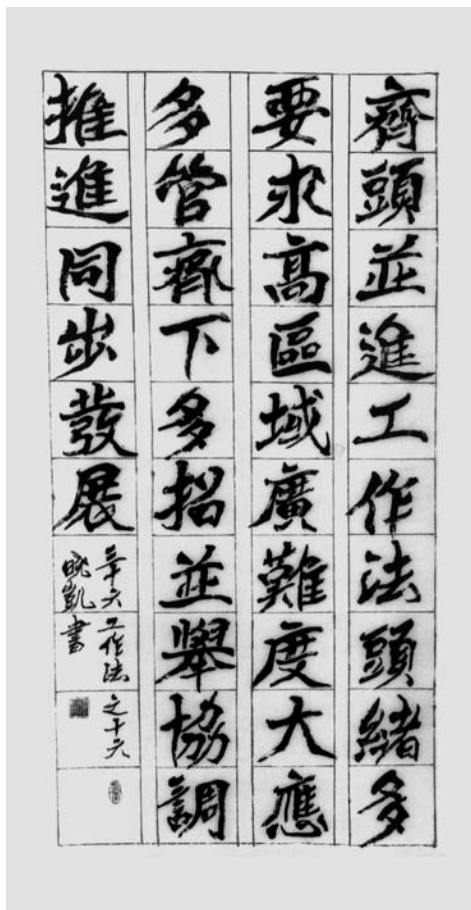 齊頭並進工作法頭緒多
要求高區域廣難度大應
多管齊下多招並舉協調
推進同步發展
三十六工作法之十六
曉凱書